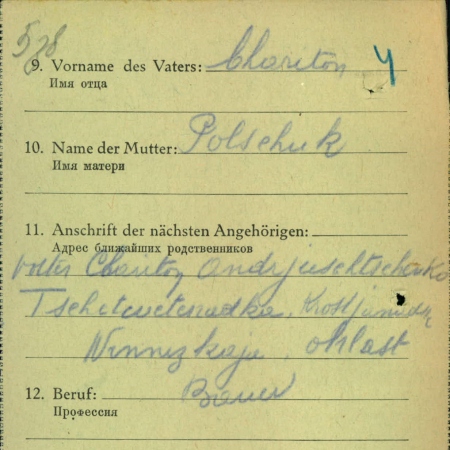 578
9. Vorname des Vaters: Chariton 4
Имя отца
10. Name der Mutter: Polschuk
Имя матери
11. Anschrift der nächsten Angehörigen:
Адрес ближайших родственников
Chariton Andrjuschtschenko
Winnizkaja, oblast
12. Beruf: Bauer
Профессия